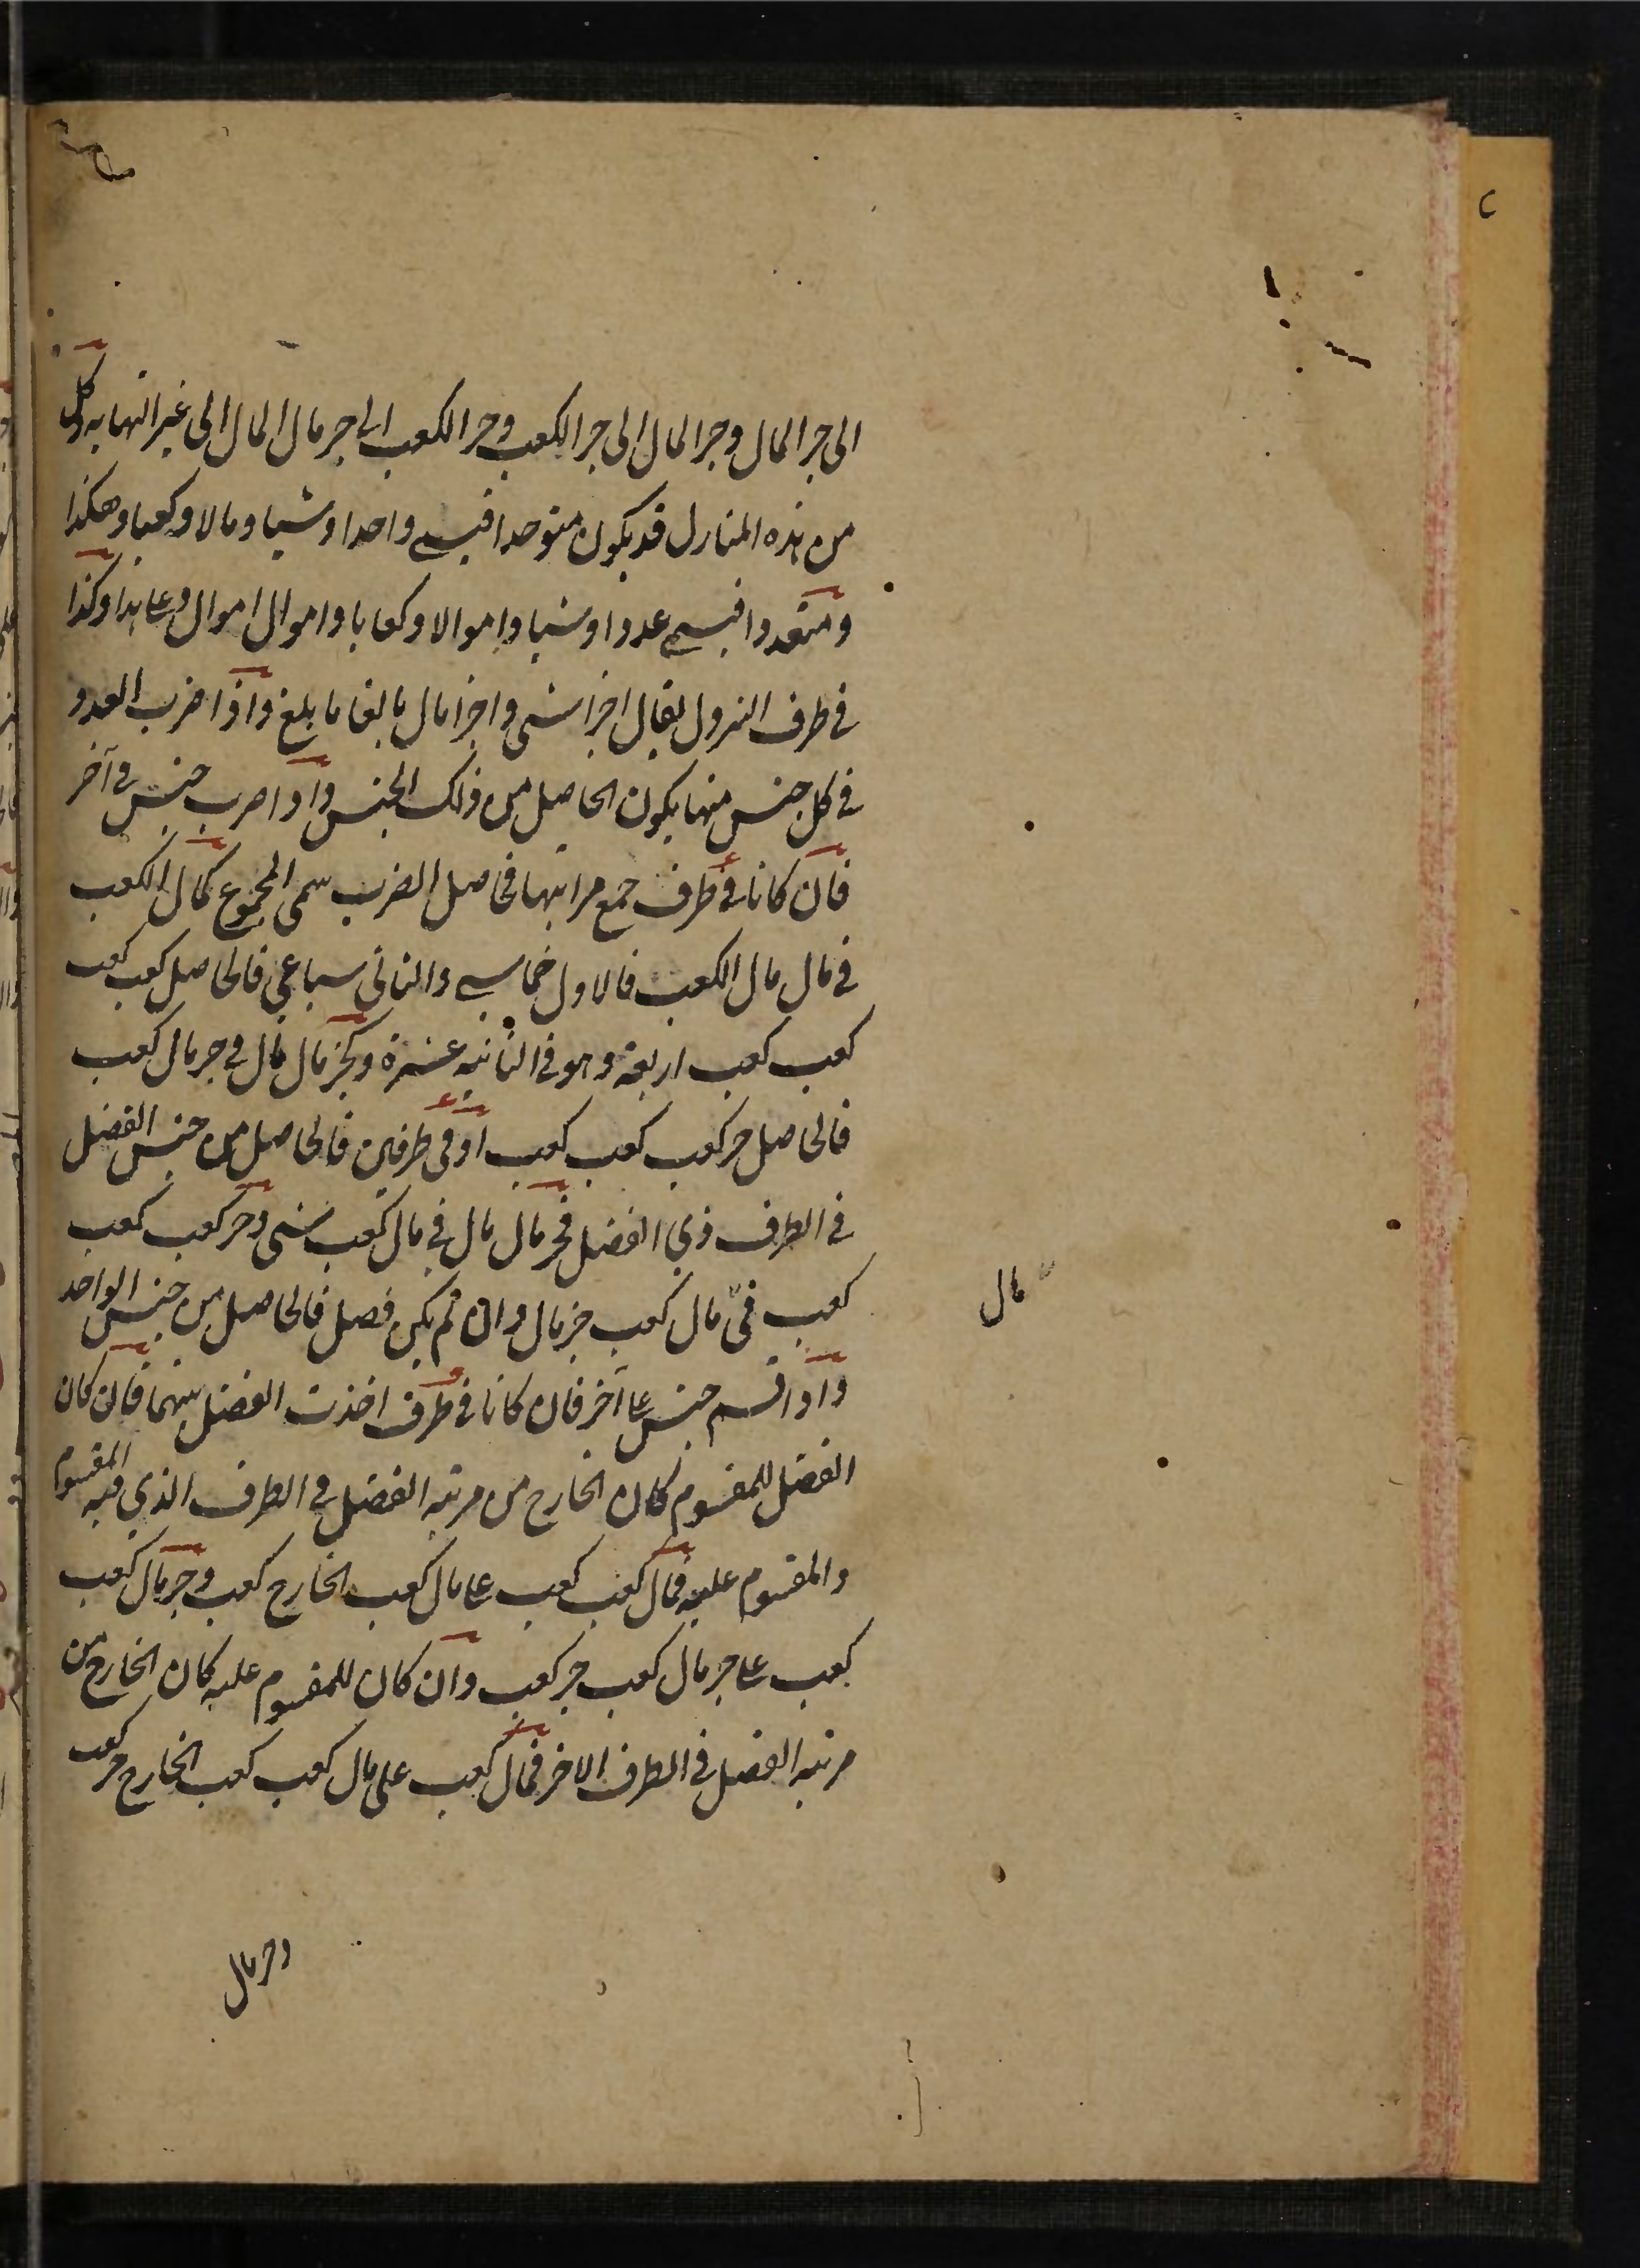 الى جزالمال وجزالمال الى جزالكعب وجزالكعب الى جزمال المال الى غيرالنهايه وكل
من هذه المنازل قد يكون متوحدا فيسمى واحدا وشيا ومالا وكعبا وهكذا
ومتعددا فيسمى عددا واشيا واموالا وكعابا واموال اموال وعلى هذا وكذا
فى طرف النزول يقال اجزا شى واجزا مال بالغا ما بلغ واذا ضرب العدد
فى كل جنس منها يكون الحاصل من ذلك الجنس واذا ضرب جنس فى آخر
فان كانا فى طرف جمع مراتبهما فحاصل الضرب سمى المجموع كمال الكعب
فى مال مال الكعب فالاول خماسى والثانى سباعى فالحاصل كعب كعب
كعب كعب اربعة وهو فى الثانيه عشرة وكجز مال مال فى جز مال كعب
فالحاصل جز كعب كعب كعب او فى طرفين فالحاصل من جنس الفضل
فى الطرف ذى الفضل فجز مال مال فى مال كعب شى وجز كعب كعب
كعب فى مال كعب جز مال وان لم يكن فضل فالحاصل من جنس الواحد
مال
واذا قسم جنس على آخر فان كانا فى طرف اخذت الفضل بينهما فان كان
الفضل للمقسوم كان الخارج من مرتبه الفضل فى الطرف الذى فيه المقسوم
والمقسوم عليه فمال كعب كعب على مال كعب الخارج كعب وجز مال كعب
كعب على جز مال كعب جز كعب وان كان للمقسوم عليه كان الخارج من
مرتبه الفضل فى الطرف الاخر فمال كعب على مال كعب كعب الخارج جز كعب
وجز مال